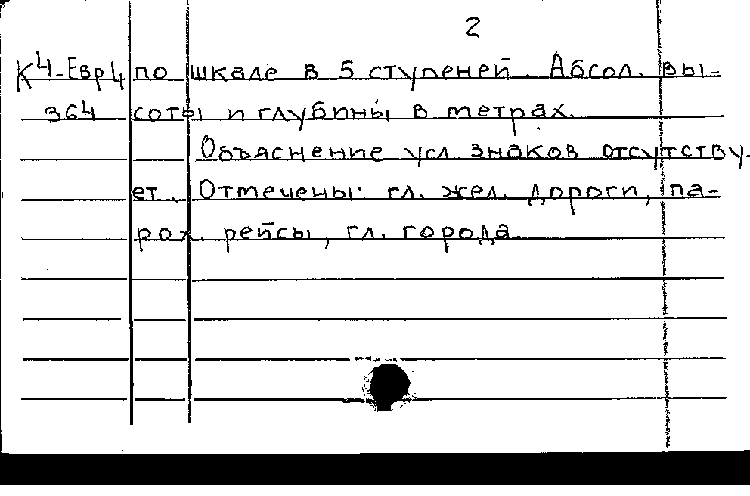 2
К4-Евр4 по шкале в 5 ступеней. Абсол. вы-
364 соты и глубины в метрах.
Объяснение усл. знаков отсутству-
ет. Отмечены: гл. жел. дороги, па-
рох. рейсы, гл. города